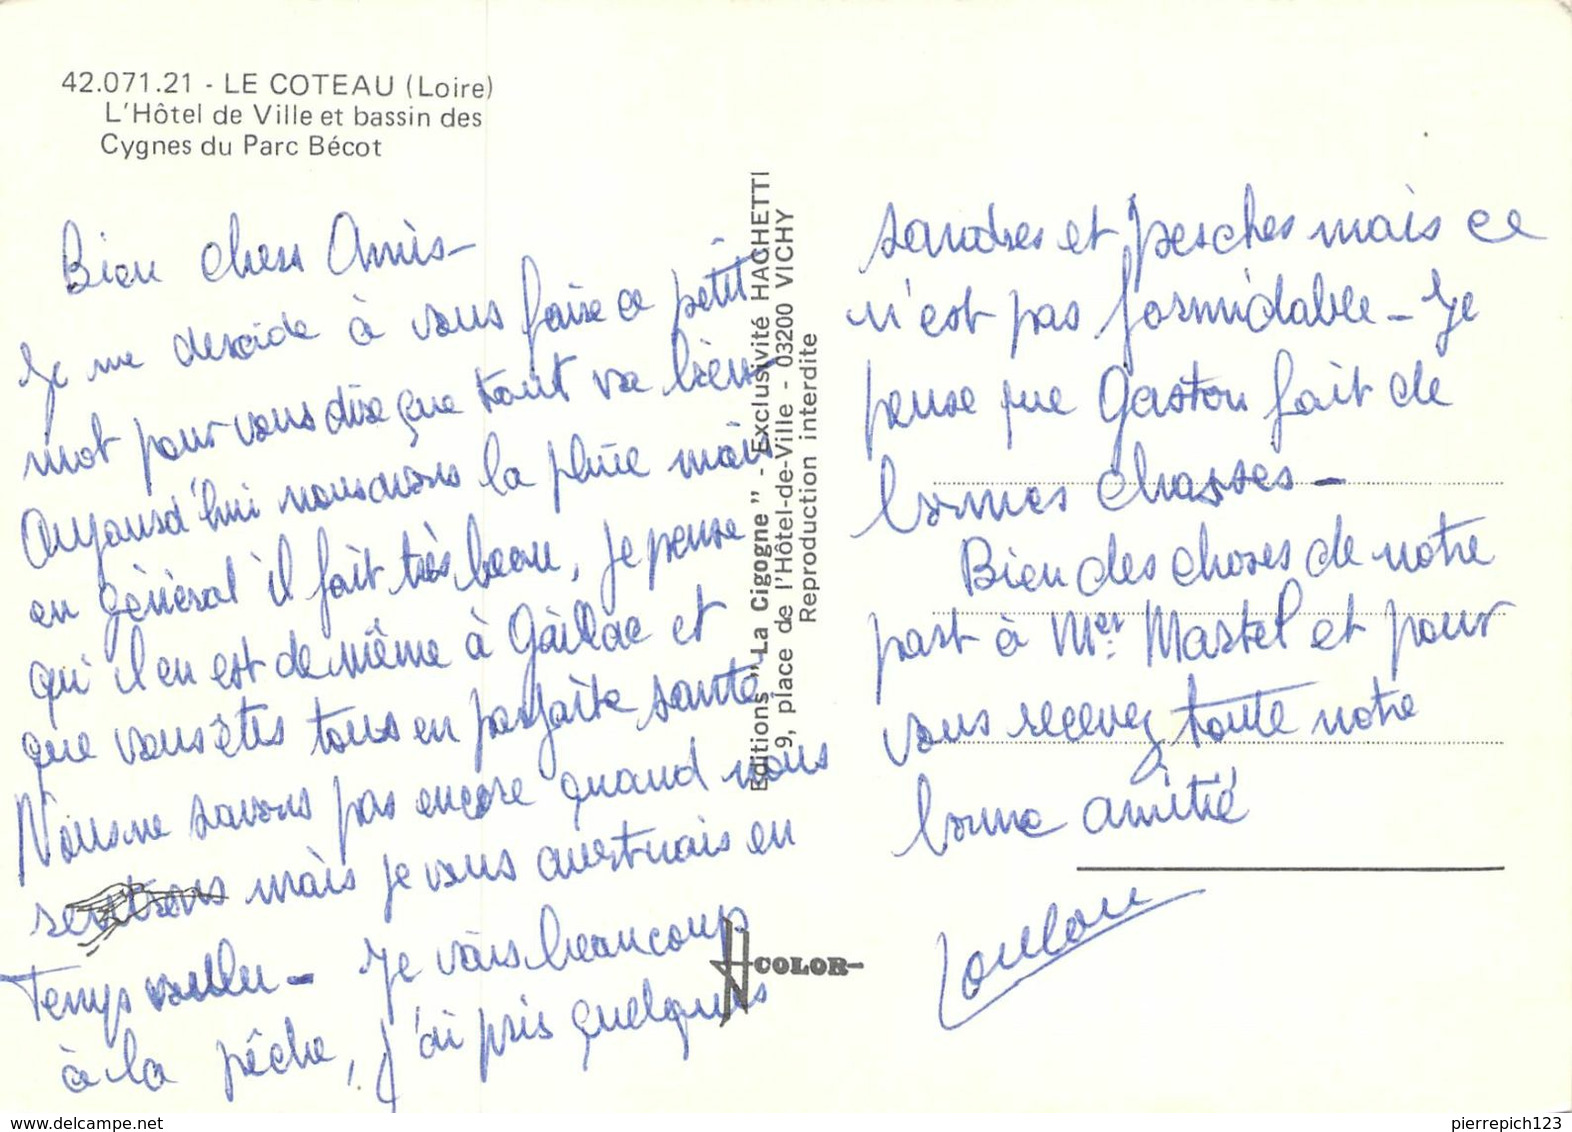 42.071.21 - LE COTEAU (Loire)
L'Hôtel de Ville et bassin des
Cygnes du Parc Bécot
Bien chers Amis -
Je me descide à vous faire ce petit
mot pour vous dire que tout va bien
Aujourd'hui nous avons la pluie mais
en général il fait très beau, je pense
qu'il en est de même à Gaillac et
que vous êtes tous en parfaite santé
Nous ne savons pas encore quand nous
rentrons mais je vous avertirais en
Temps voullu - Je vais beaucoup
à la pêche, j'ai pris quelques
Editions "La Cigogne" - Exclusivité HACHETTI
9, place de l'Hôtel-de-Ville - 03200 VICHY
Reproduction interdite
COLOR
sandres et perches mais ce
n'est pas formidable - Je
pense que Gaston fait de
bonnes chasses -
Bien des choses de notre
part à Mer Martel et pour
vous recevez toute notre
bonne amitié
Loulou
pierrepich123